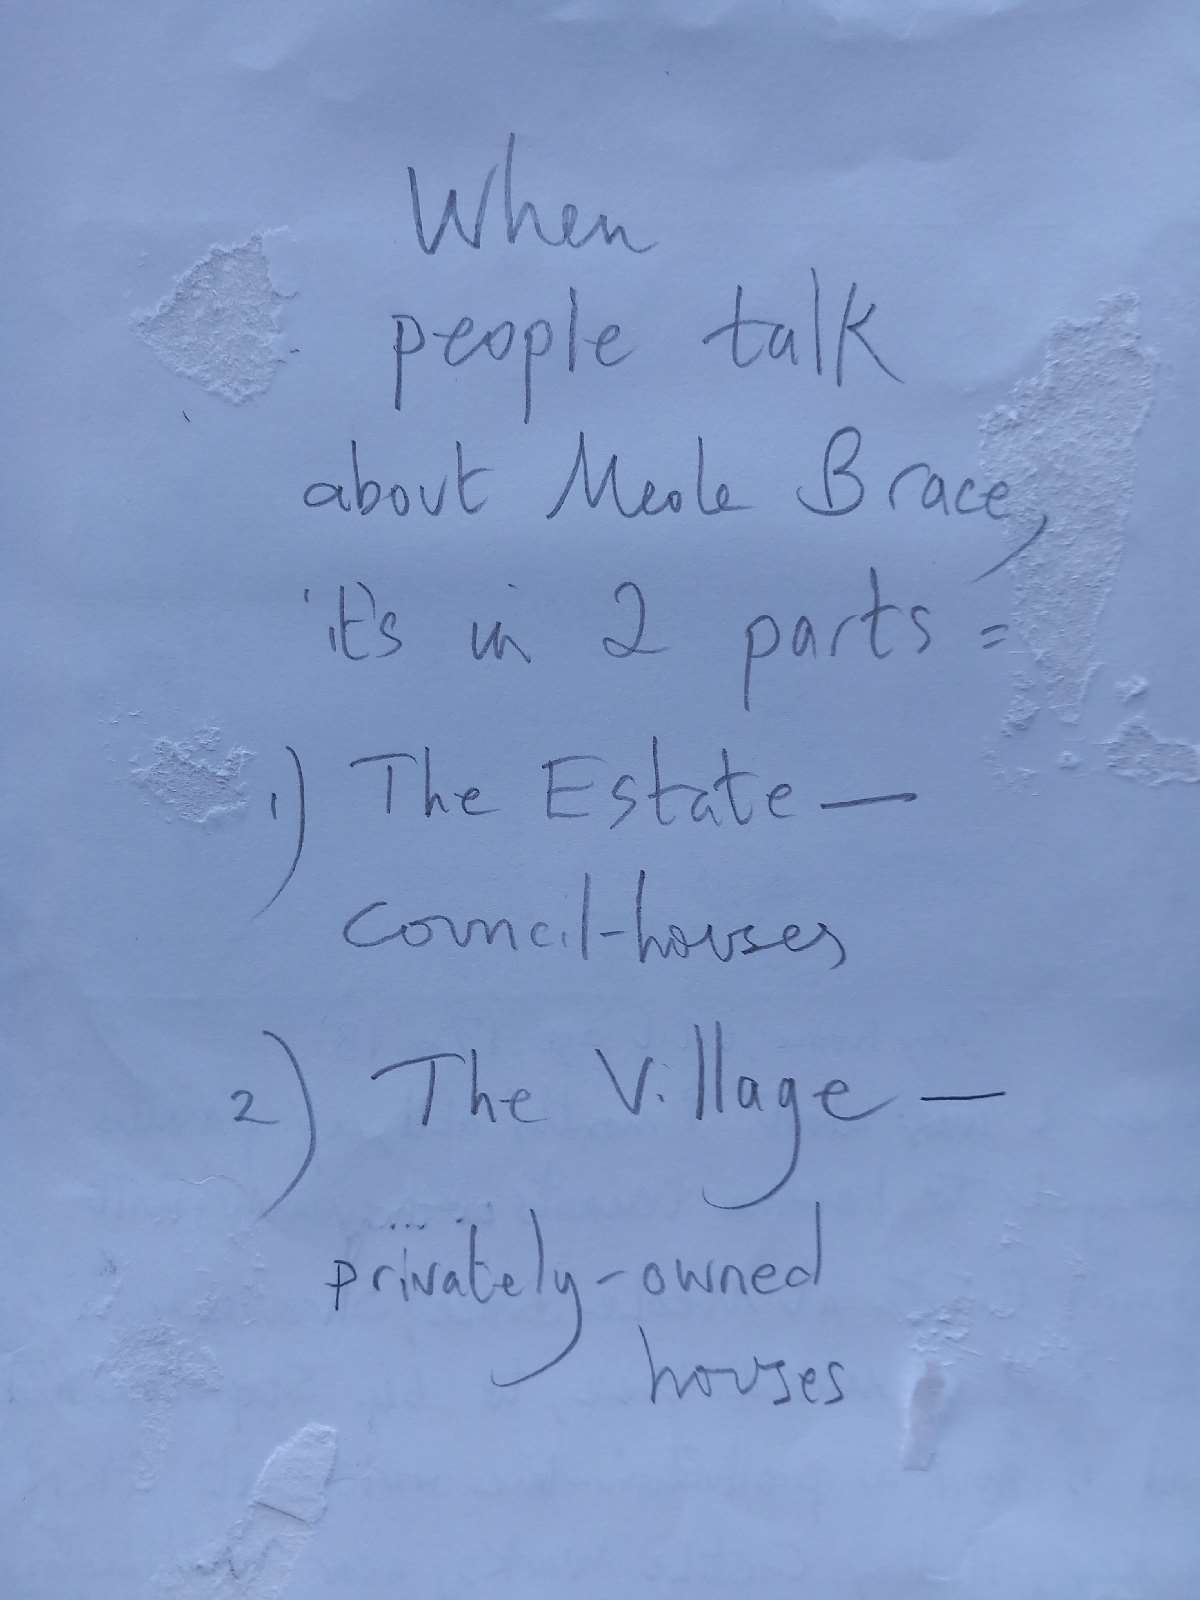 When
people talk
about Meole Brace,
it's in 2 parts =
1) The Estate —
council-houses
2) The Village —
privately-owned
houses